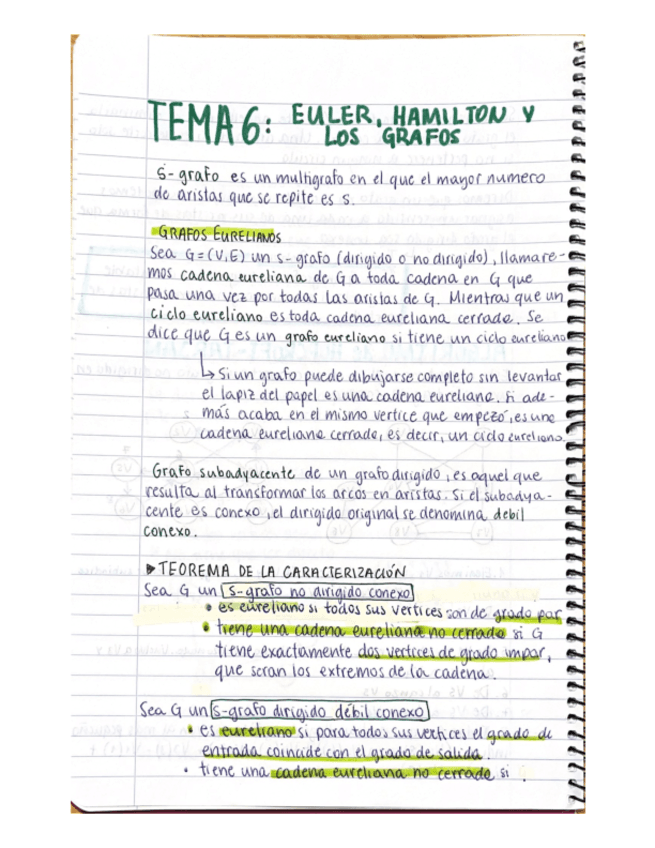 TEMA 6: EULER, HAMILTON Y
LOS GRAFOS
S-grafo es un multigrafo en el que el mayor numero
de aristas que se repite es s.
GRAFOS EURELIANOS
Sea G=(V,E) un s-grafo (dirigido o no dirigido), llamare-
mos cadena eureliana de G a toda cadena en G que
pasa una vez por todas las aristas de G. Mientras que un
ciclo eureliano es toda cadena eureliana cerrada. Se
dice que G es un grafo eureliano si tiene un ciclo eureliano
↳ Si un grafo puede dibujarse completo sin levantar
el lapiz del papel es una cadena eureliana. Si ade-
más acaba en el mismo vertice que empezó, es una
cadena eureliana cerrada, es decir, un ciclo eureliano.
Grafo subadyacente de un grafo dirigido, es aquel que
resulta al transformar los arcos en aristas. Si el subadya-
cente es conexo, el dirigido original se denomina debil
conexo.
▶ TEOREMA DE LA CARACTERIZACIÓN
Sea G un s-grafo no dirigido conexo
• es eureliano si todos sus vertices son de grado par
• tiene una cadena eureliana no cerrada si G
tiene exactamente dos vertices de grado impar,
que seran los extremos de la cadena.
Sea G un s-grafo dirigido débil conexo
• es eureliano si para todos sus vertices el grado de
entrada coincide con el grado de salida.
• tiene una cadena eureliana no cerrada si